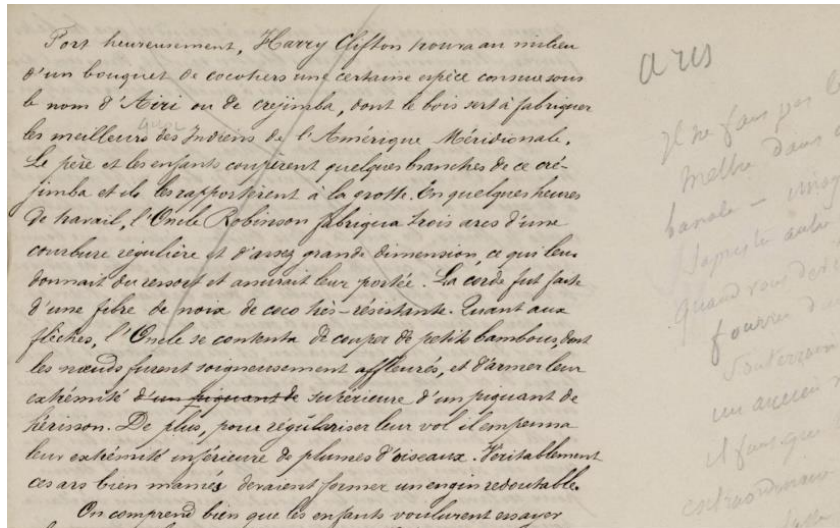 Fort heureusement, Harry Clifton trouva au milieu
d'un bouquet de cocotiers une certaine espèce connue sous
le nom d'Airi ou de crejimba, dont le bois sert à fabriquer
les meilleurs des Indiens de l'Amérique Méridionale.
Le père et les enfants coupèrent quelques branches de ce cré-
jimba et ils les rapportèrent à la grotte. En quelques heures
de travail, l'Oncle Robinson fabriqua trois arcs d'une
courbure régulière et d'assez grande dimension, ce qui leur
donnait du ressort et assurait leur portée. La corde fut faite
d'une fibre de noix de coco très-résistante. Quant aux
flèches, l'Oncle se contenta de couper de petits bambous, dont
les nœuds furent soigneusement affleurés, et d'armer leur
extrémité d'un piquant de supérieure d'un piquant de
hérisson. De plus, pour régulariser leur vol il empenna
leur extrémité inférieure de plumes d'oiseaux. Véritablement
ces arcs bien maniés devaient former un engin redoutable.
On comprend bien que les enfants voulurent essayer
arcs
Il ne faut pas
mettre dans
banale –
quand vous
fourrer
souterrain
un
il faut que